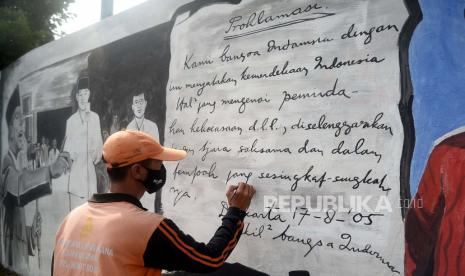 Proklamasi.
Kami bangsa Indonesia dengan
ini menyatakan kemerdekaan Indonesia
Hal² jang mengenai peminda-
han kekoeasaan d.l.l., diselenggarakan
tjara saksama dan dalam
tempoh jang sesingkat-singkat
nja
Djakarta 17-8-'05
Wakil² bangsa Indonesia
REPUBLIKA